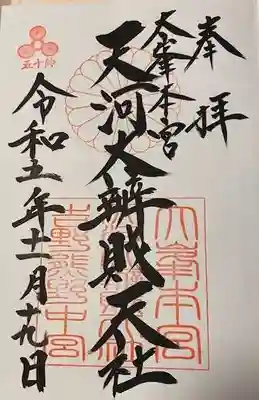 奉拝
大峯本宮
天河大辨財天社
令和五年十一月十九日
五十鈴
大峯本宮
吉野熊野中宮